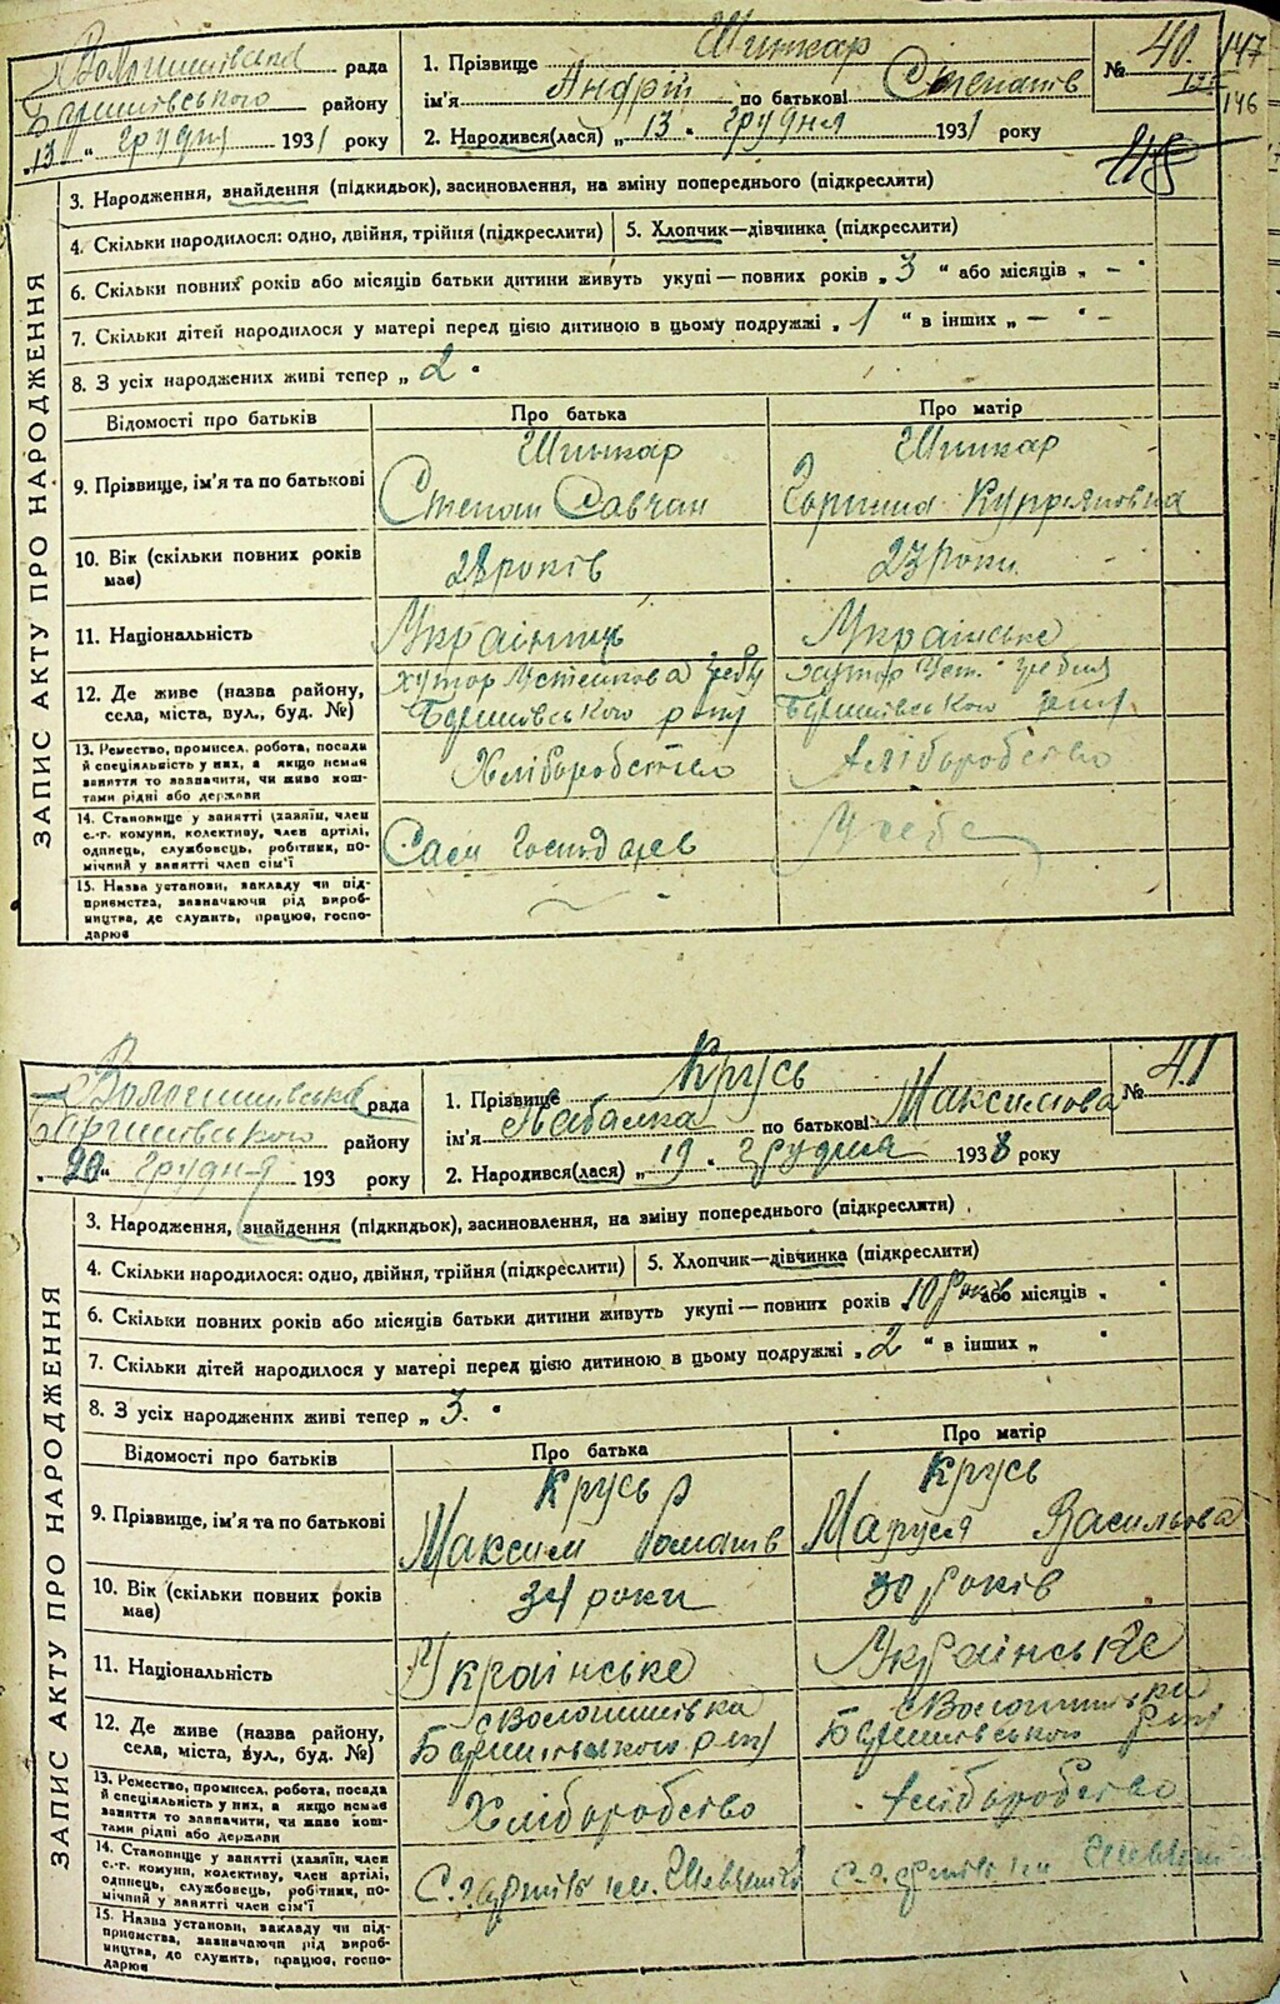 рада
Баришівського району
„13“ грудня 1931 року
1. Прізвище Шинкар
ім'я Андрій по батькові Степанів
2. Народився(лася) „13“ грудня 1931 року
№ 40.
147
146
ЗАПИС АКТУ ПРО НАРОДЖЕННЯ
3. Народження, знайдення (підкидьок), засиновлення, на зміну попереднього (підкреслити)
4. Скільки народилося: одно, двійня, трійня (підкреслити) 5. Хлопчик—дівчинка (підкреслити)
6. Скільки повних років або місяців батьки дитини живуть укупі — повних років „3“ або місяців „—“
7. Скільки дітей народилося у матері перед цією дитиною в цьому подружжі „1“ в інших „—“ —
8. З усіх народжених живі тепер „2“
Відомості про батьків Про батька Про матір
9. Прізвище, ім'я та по батькові
Шинкар
Степан Савчан
Шинкар
Купріяновна
10. Вік (скільки повних років має)
28 років
23 роки.
11. Національність
Українське
12. Де живе (назва району, села, міста, вул., буд. №)
хутор
Баришівського р-ну
хутор Уст.
Баришівського р-ну
13. Ремество, промисел, робота, посада й спеціяльність у них, а якщо немає заняття то зазначити, чи живе коштами рідні або держави
Хліборобство
Хліборобство
14. Становище у занятті (хазяїн, член с.-г. комуни, колективу, член артілі, одинець, службовець, робітник, помічний у занятті член сім'ї
Сам
15. Назва установи, закладу чи підприємства, зазначаючи рід виробництва, де служить, працює, господарює
Волошинівська рада
Баришівського району
„20“ грудня 193 року
1. Прізвище Крусь
ім'я по батькові Максимова
2. Народився(лася) „19“ грудня 193 року
№ 41
ЗАПИС АКТУ ПРО НАРОДЖЕННЯ
3. Народження, знайдення (підкидьок), засиновлення, на зміну попереднього (підкреслити)
4. Скільки народилося: одно, двійня, трійня (підкреслити) 5. Хлопчик—дівчинка (підкреслити)
6. Скільки повних років або місяців батьки дитини живуть укупі — повних років „10 років або місяців „ “
7. Скільки дітей народилося у матері перед цією дитиною в цьому подружжі „2“ в інших „ “
8. З усіх народжених живі тепер „3.“
Відомості про батьків Про батька Про матір
9. Прізвище, ім'я та по батькові
Крусь
Максим Романів
Крусь
Маруся Васильова
10. Вік (скільки повних років має)
34 роки
30 років
11. Національність
Українське
Українське
12. Де живе (назва району, села, міста, вул., буд. №)
с Волошинівка
Баришівського р-ну
с Волошинівка
Баришівського р-ну
13. Ремество, промисел, робота, посада й спеціяльність у них, а якщо немає заняття то зазначити, чи живе коштами рідні або держави
Хліборобство
Хліборобство
14. Становище у занятті (хазяїн, член с.-г. комуни, колективу, член артілі, одинець, службовець, робітник, помічний у занятті член сім'ї
С.г. артіль ім. Шевченка
С.г. артіль ім
15. Назва установи, закладу чи підприємства, зазначаючи рід виробництва, де служить, працює, господарює